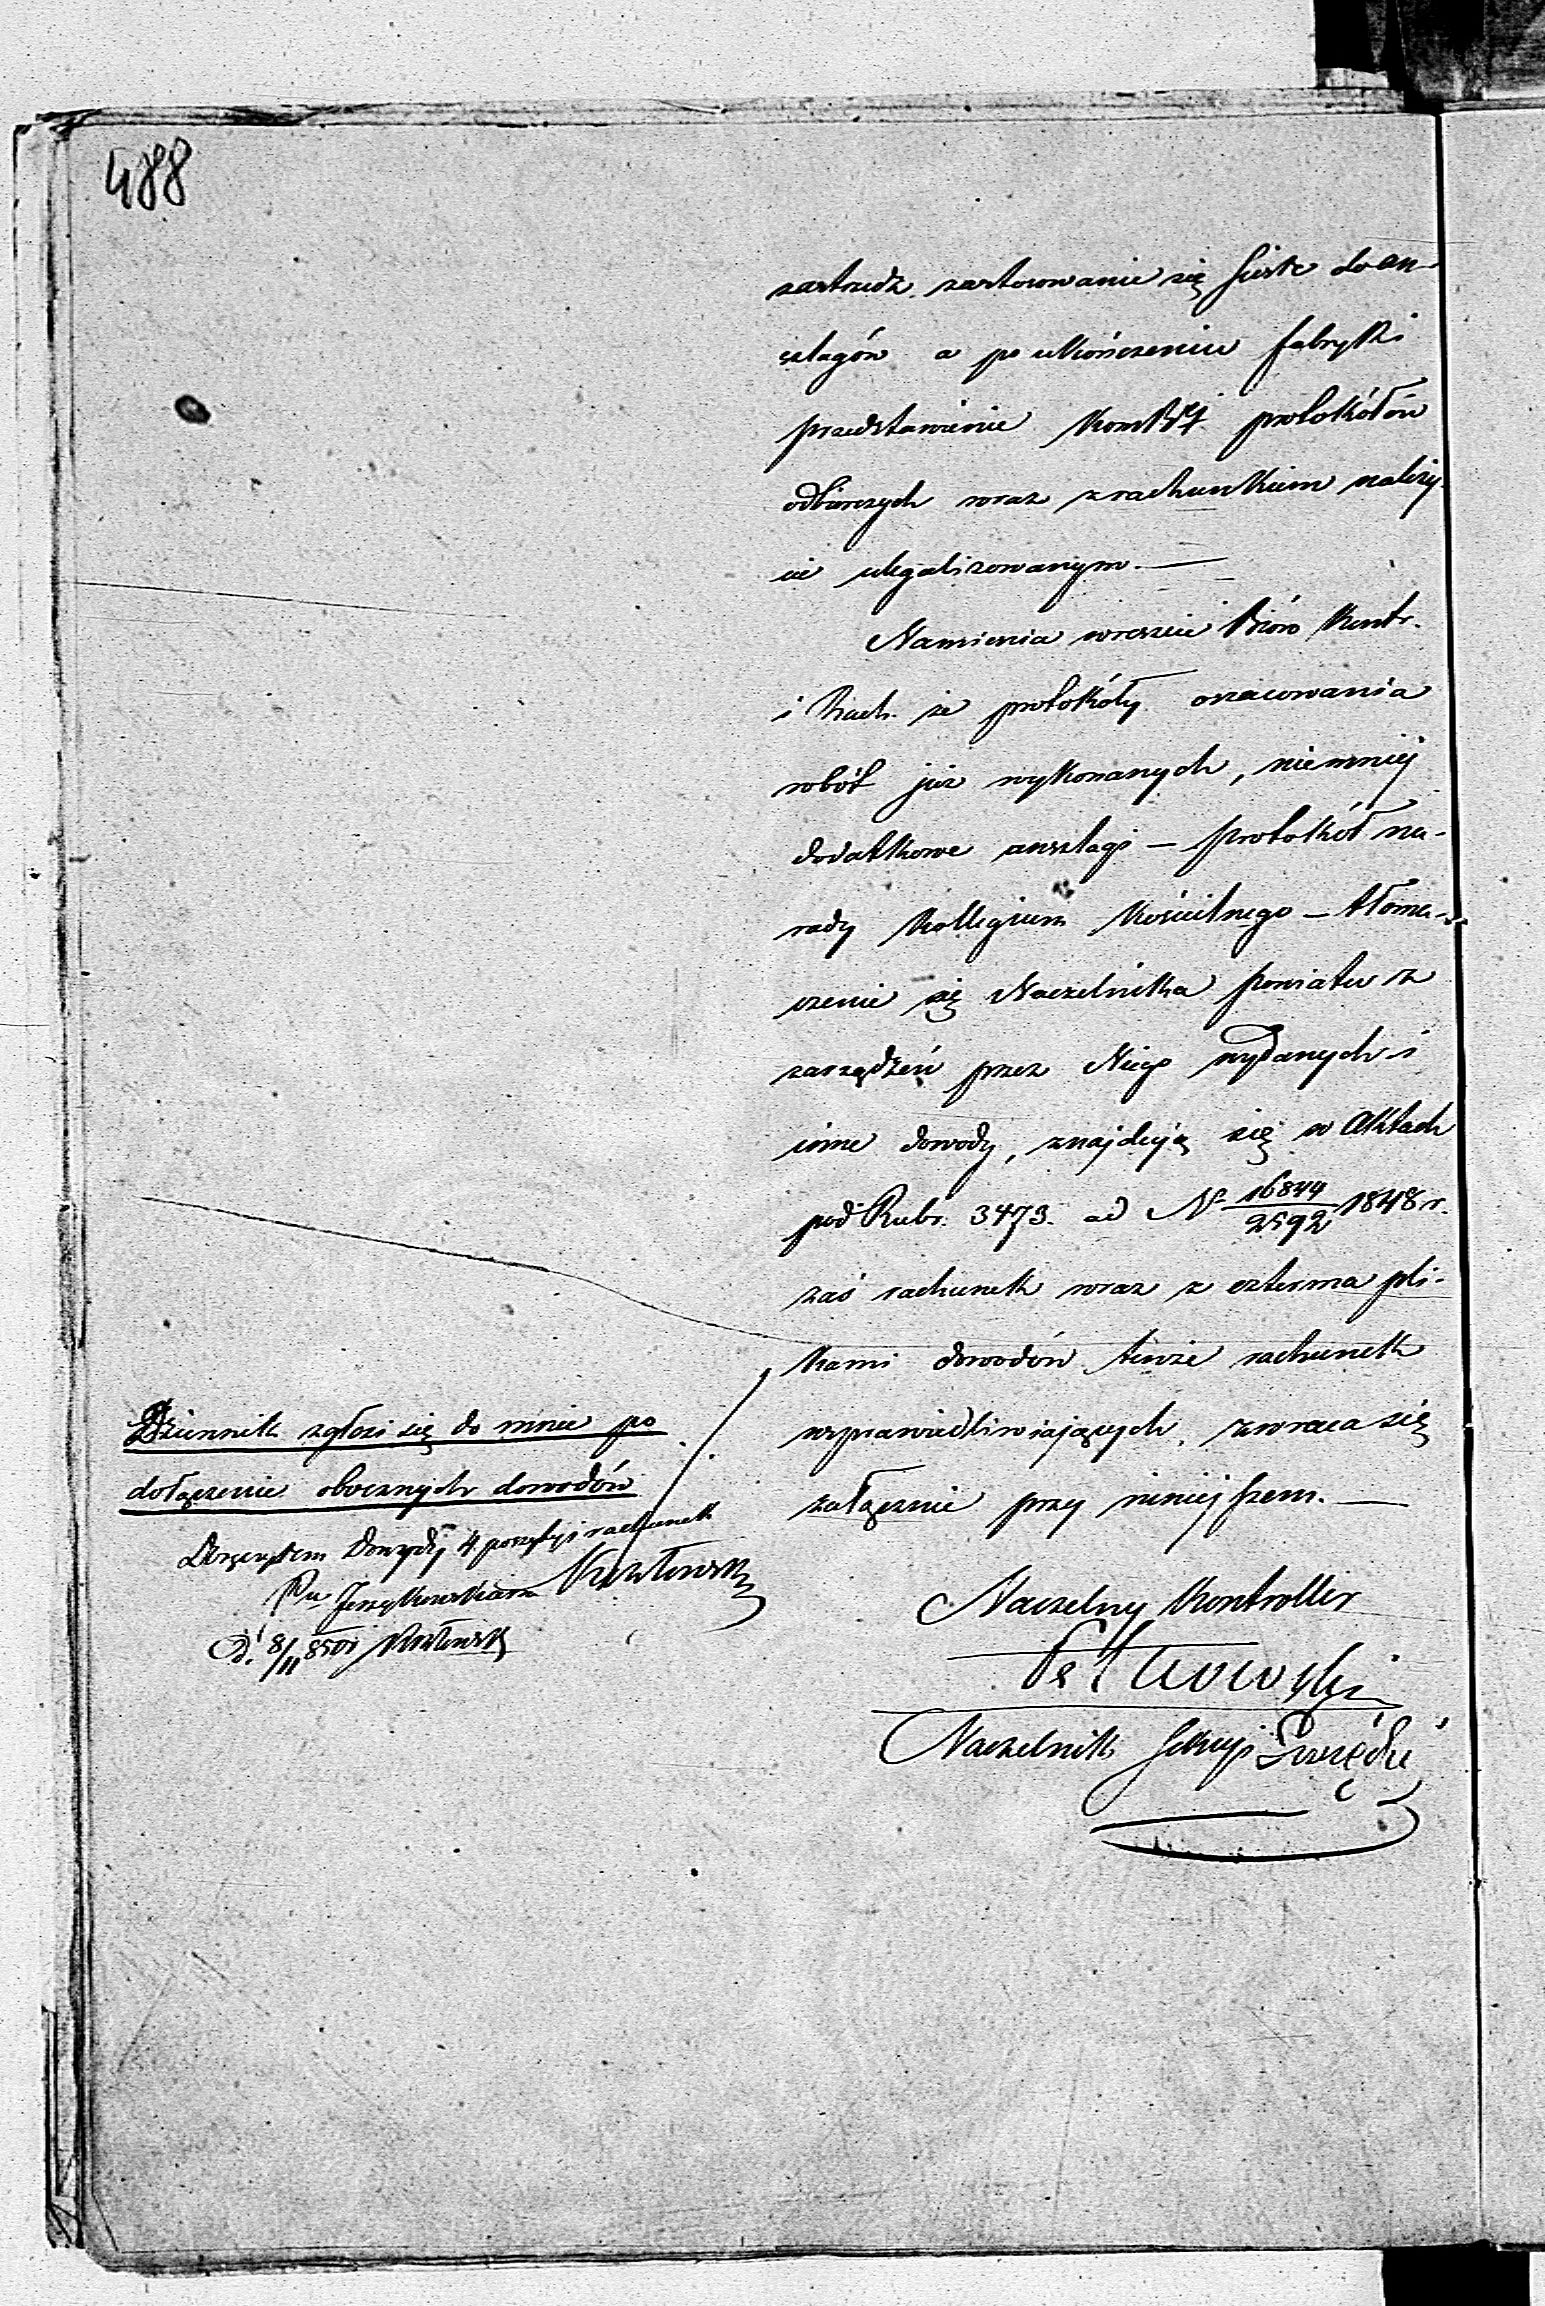 488
zastrzedz zastosowanie się ściśle do an-
szlagów a po ukończeniu fabryki
przedstawienie protokółów
odbiorczych wraz z rachunkiem należy-
cie ulegalizowanym. —
Namienia wreszcie Bióro Kontr.
i Rach. że protokóły oszacowania
robót już wykonanych, niemniej
dodatkowe anszlagi — protokół na-
rady Kollegium Kościelnego — tłoma-
czenie się Naczelnika powiatu z
zarządzeń przez Niego wydanych i
inne dowody, znajdują się w Aktach
pod Rubr. 3473. ad Nr 16844/2592 1848 r.
zaś rachunek wraz z czterma pli-
kami dowodów tenże rachunek
usprawiedliwiających, zwraca się
załącznie przy niniejszem. —
Naczelny Kontroller
Naczelnik Sekcyi
Dziennik zgłosi się do mnie po
dołączenie obocznych dowodów
4 rachunek